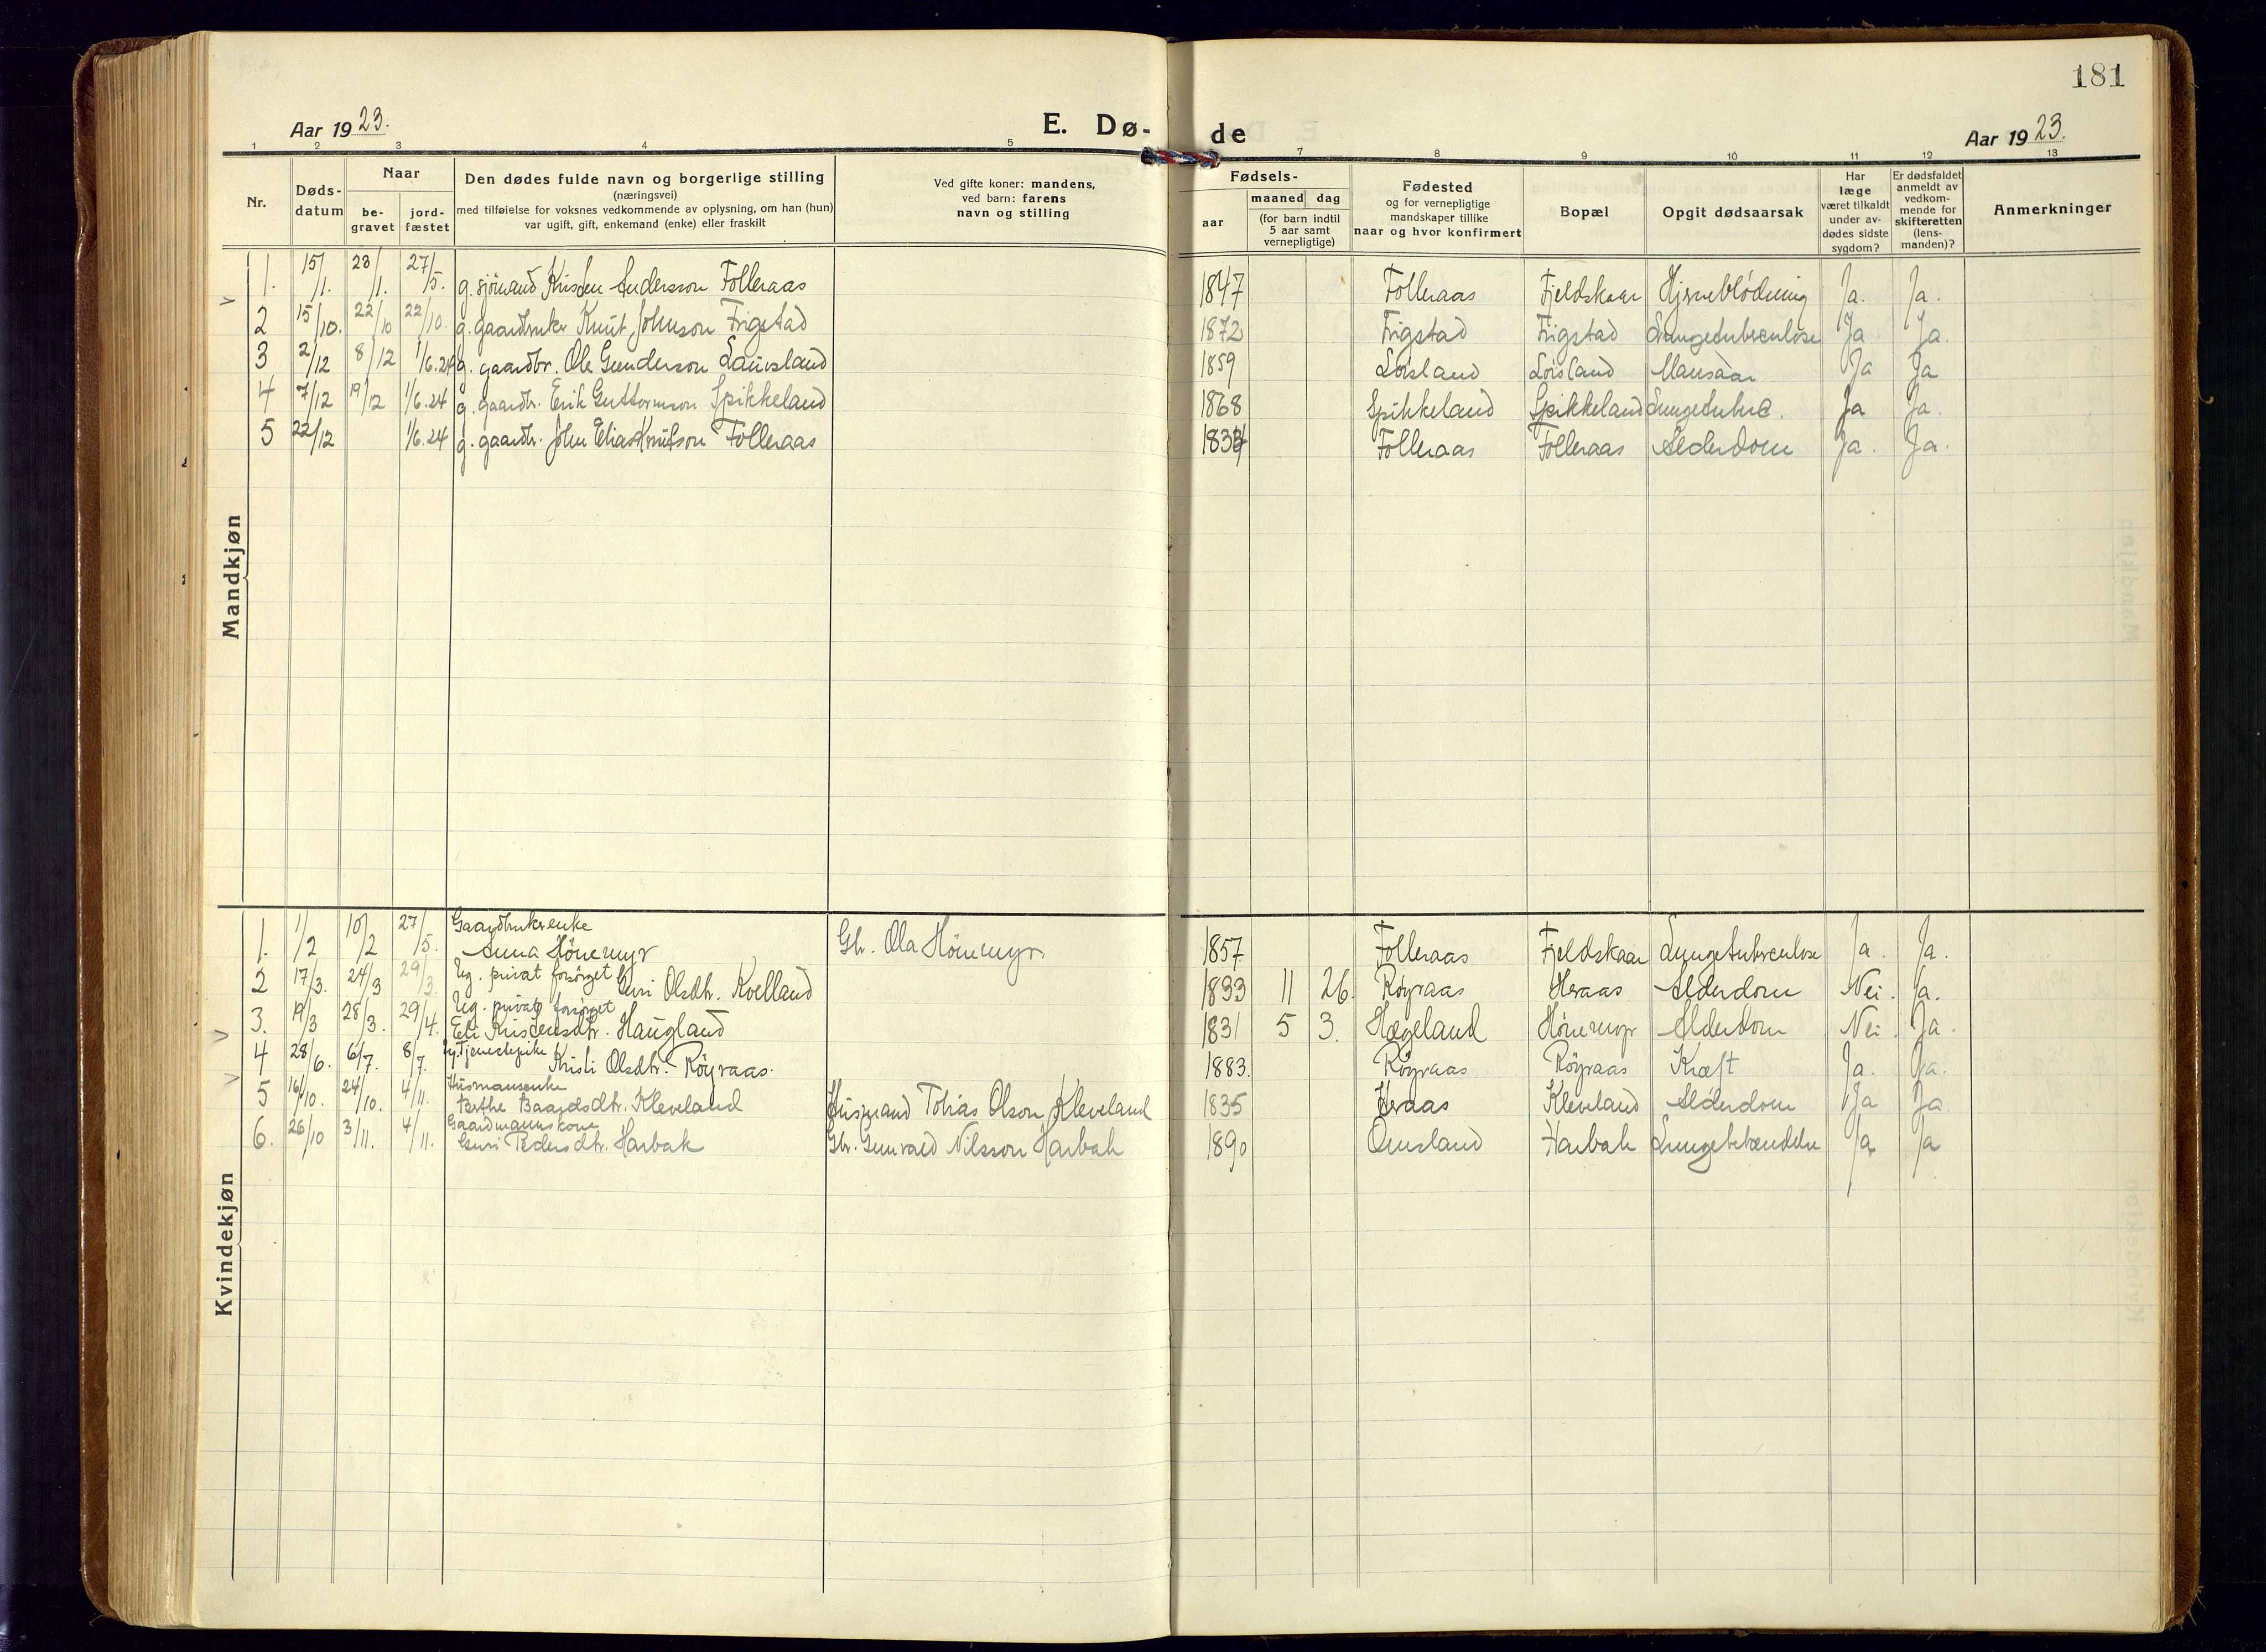 181
Aar 1923. E. Dø- de Aar 1923.
1 2 3 4 5 7 8 9 10 11 12 13
Nr.
Døds-
datum
Naar
be-
gravet
jord-
fæstet
Den dødes fulde navn og borgerlige stilling
(næringsvei)
med tilføielse for voksnes vedkommende av oplysning, om han (hun)
var ugift, gift, enkemand (enke) eller fraskilt
Ved gifte koner: mandens,
ved barn: farens
navn og stilling
Fødsels-
aar
maaned dag
(for barn indtil
5 aar samt
vernepligtige)
Fødested
og for vernepligtige
mandskaper tillike
naar og hvor konfirmert
Bopæl
Opgit dødsaarsak
Har
læge
været tilkaldt
under av-
dødes sidste
sygdom?
Er dødsfaldet
anmeldt av
vedkom-
mende for
skifteretten
(lens-
manden)?
Anmerkninger
Mandkjøn
1. 15/1. 23/1. 27/5. g. sjömand Kristen Andersson Folleraas 1847 Folleraas Fjeldskaar Hjerneblödning Ja. Ja.
2 15/10. 22/10 22/10. g. gaardbruker Knut Johnson Frigstad 1872 Frigstad Frigstad Lungetuberculose Ja Ja.
3 2/12 8/12 1/6.24 g. gaardbr. Ole Gunderson Lauvsland 1859 Loisland Loisland Ja Ja
4 7/12 19/12 1/6.24 g. gaardbr. Erik Guttormson Spikkeland 1868 Spikkeland Spikkeland Lungetuberc. Ja Ja.
5 22/12 1/6.24 g. gaardbr. John Elias Knutson Folleraas Folleraas Folleraas Alderdom Ja. Ja.
Kvindekjøn
Gaardbrukerenke
1. 1/2 10/2 27/5. Anna Hönemyr Gbr. Ola Hönemyr. 1857 Folleraas Fjeldskaar Lungetuberculose Ja. Ja.
2 17/3. 24/3 29/3. Ug. privat forsörget Guri Olsdtr. Kvelland 1833 11 26. Röyraas Heraas Alderdom Nei. Ja.
Ug. privat forsörget
3. 19/3 28/3. 29/4. Eli Kristensdtr. Haugland 1831 5 3. Hægeland Hönemyr Alderdom Nei. Ja.
4 28/6. 6/7. 8/7. ug. Tjenestepike Kristi Olsdtr. Röyraas. 1883. Röyraas Röyraas Kræft Ja. Ja.
Husmansenke
5 16/10. 24/10. 4/11. Berthe Baardsdtr. Kleveland Husmand Tobias Olson Kleveland 1835 Heraas Kleveland Alderdom Ja Ja
Gaardmannskone
6. 26/10 3/11. 4/11. Guri Pedersdtr. Harbak Gbr. Gunvald Nilsson Harbak 1890 Omsland Harbak Lungebetændelse Ja Ja